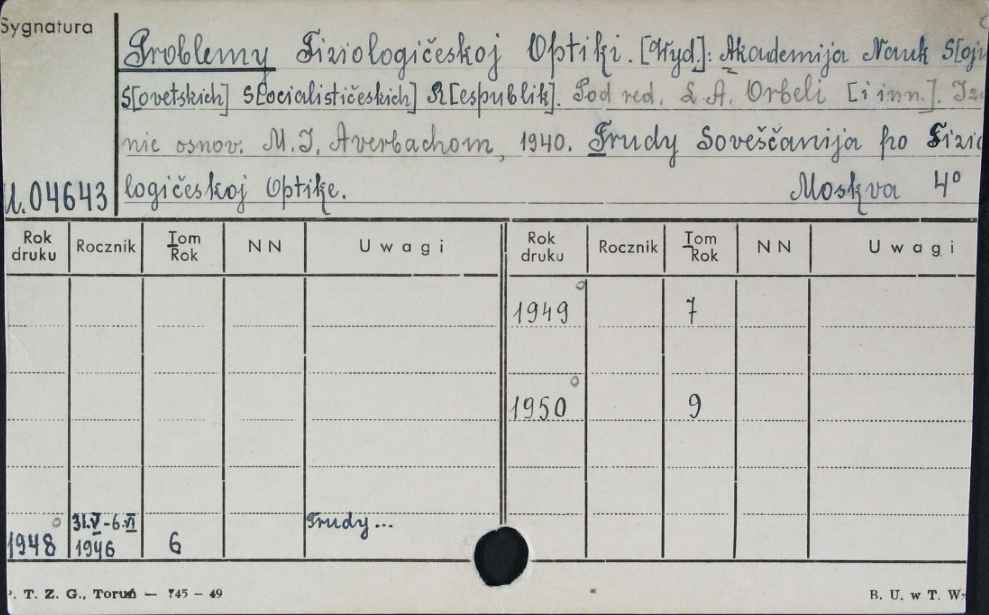 Sygnatura
Problemy Fiziologičeskoj Optiki. [Wyd.]: Akademija Nauk S[oju
S[ovetskich] S[ocialističeskich] R[espublik]. Pod red. L. A. Orbeli [i inn.]. Iz
nic osnov. M. I. Averbachom, 1940. Trudy Soveščanija po Fizio
U.04643 logičeskoj Optike. Moskva 4°
Rok druku Rocznik Tom Rok NN Uwagi Rok druku Rocznik Tom Rok NN Uwagi
1949 7
1950 9
31.V-6.VI Trudy...
1948 1946 6
. T. Z. G., Toruń — 745 - 49 B. U. w T. W